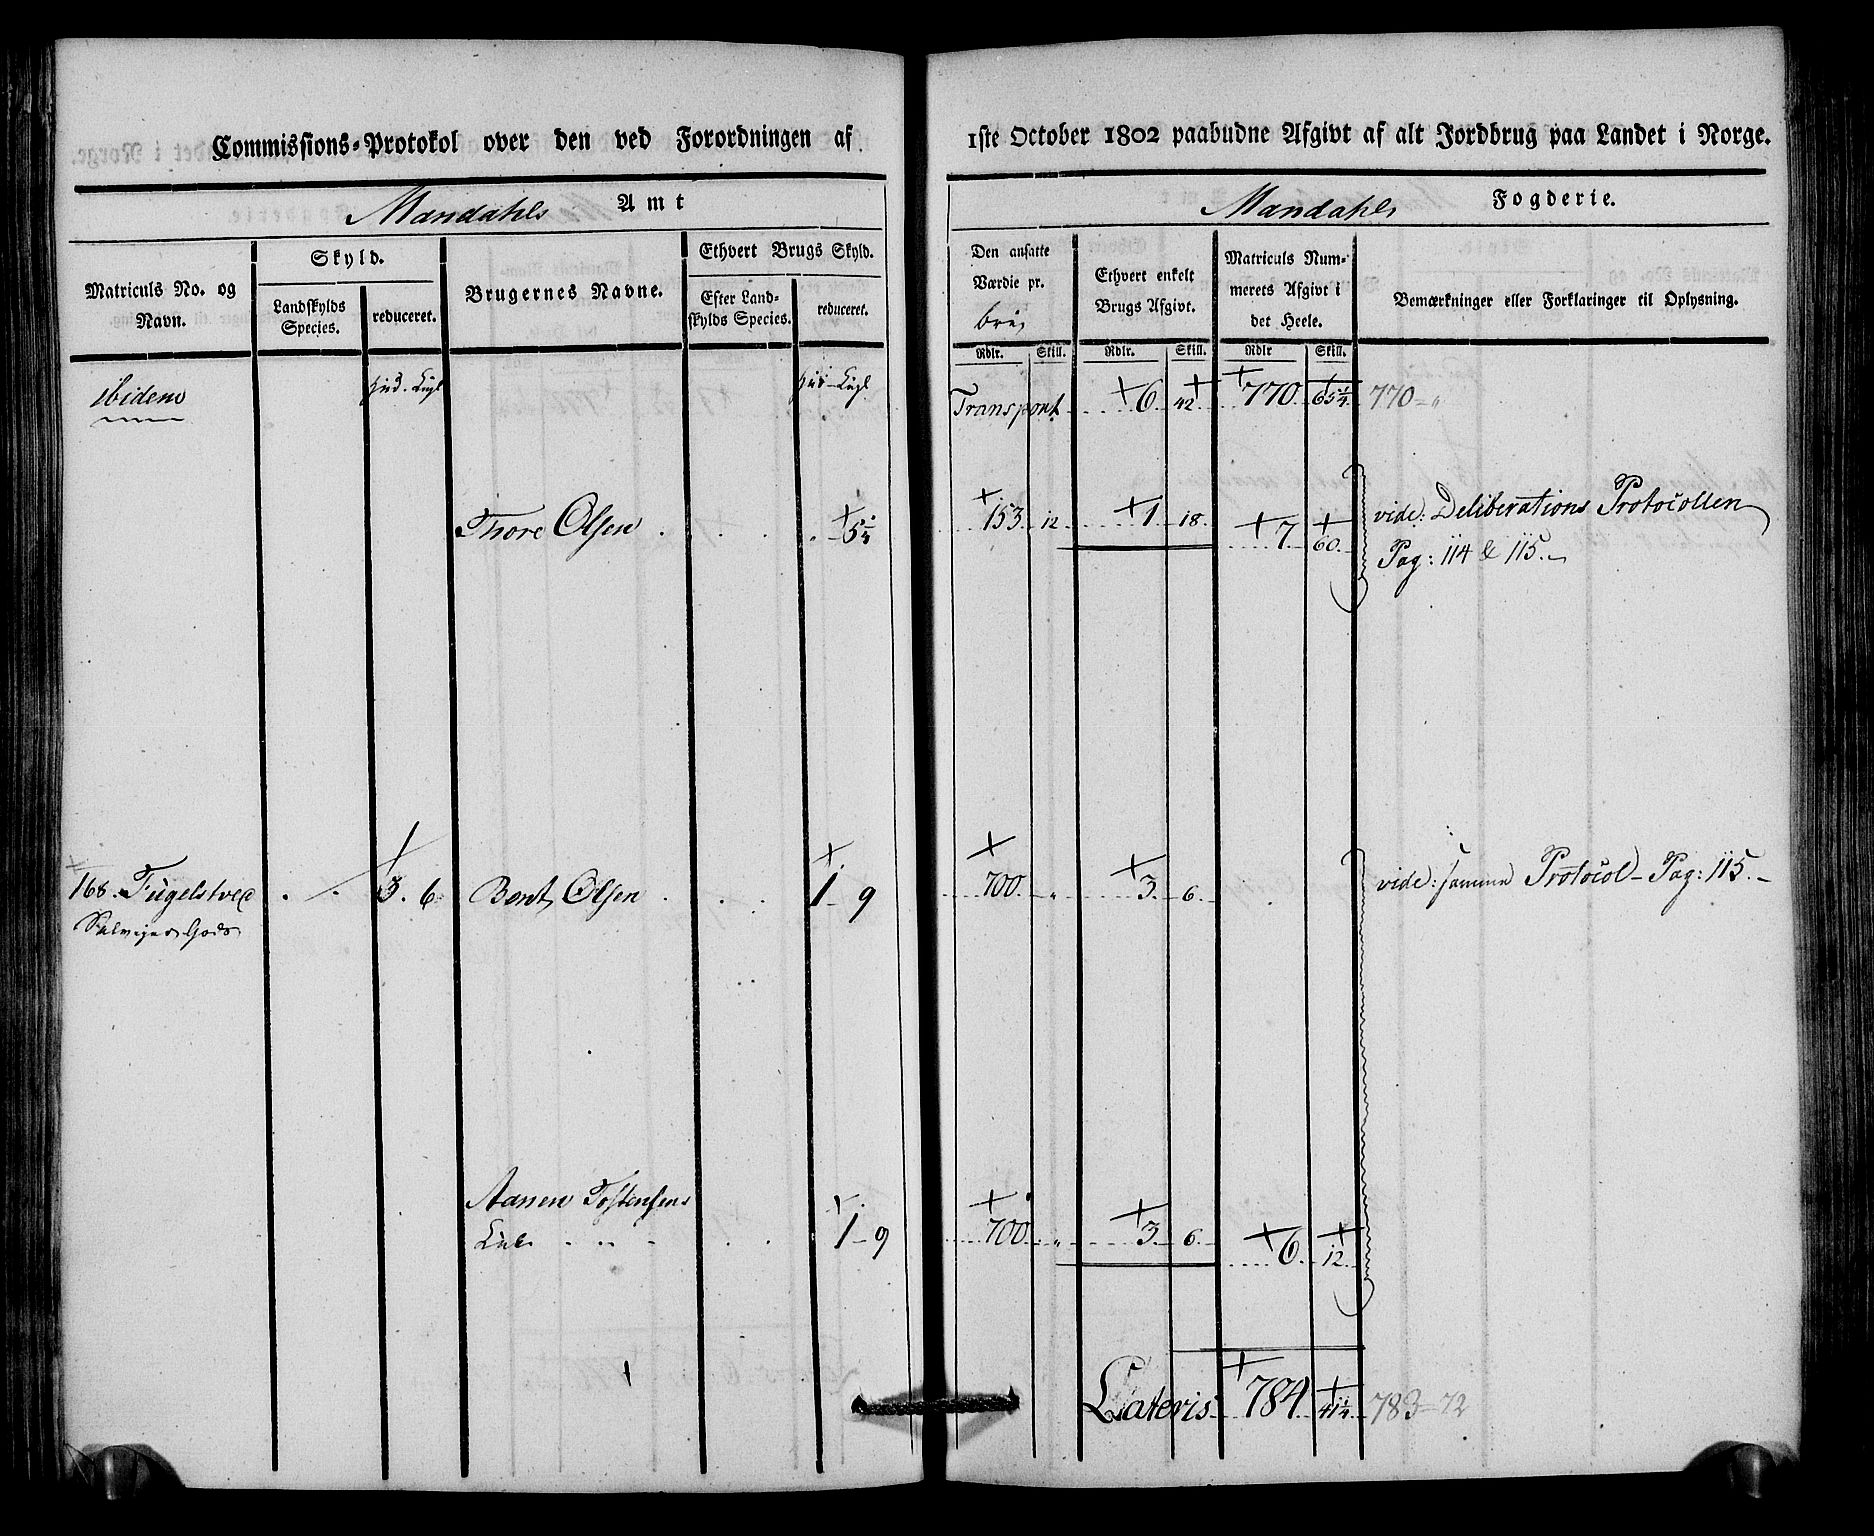 Commissions-Protokol over den ved Forordningen af
Mandahls Amt
Matriculs No. og Navn.
Skyld.
Landskylds Species.
reduceret.
Brugernes Navne.
Ethvert Brugs Skyld.
Efter Landskylds Species.
reduceret.
ibidem
Hud. Kugl
Hud. Kugl
Thore Olsen . . . . 5 1/4
168. Fugelstved . . 3. 6. Berent Olsen . . . 1 - 9
Gods
Aanen Tostensens
1 - 9
1ste October 1802 paabudne Afgivt af alt Jordbrug paa Landet i Norge.
Mandahls Fogderie.
Den ansatte Værdie pr.
Ethvert enkelt Brugs Afgivt.
Matriculs Nummerets Afgivt i det Heele.
Bemærkninger eller Forklaringer til Oplysning.
Rdlr. Skill. Rdlr. Skill. Rdlr Skill.
Transport 6. 42 770. 65 1/4 770 - "
153. 12 1. 18. 7. 60. vide: Deliberations Protocollen
Pag: 114 & 115.-
700. " 3. 6. vide: samme Protocol - Pag: 115.-
700. " 3. 6. 6. 12.
Lateris 784. 41 1/4 783-72